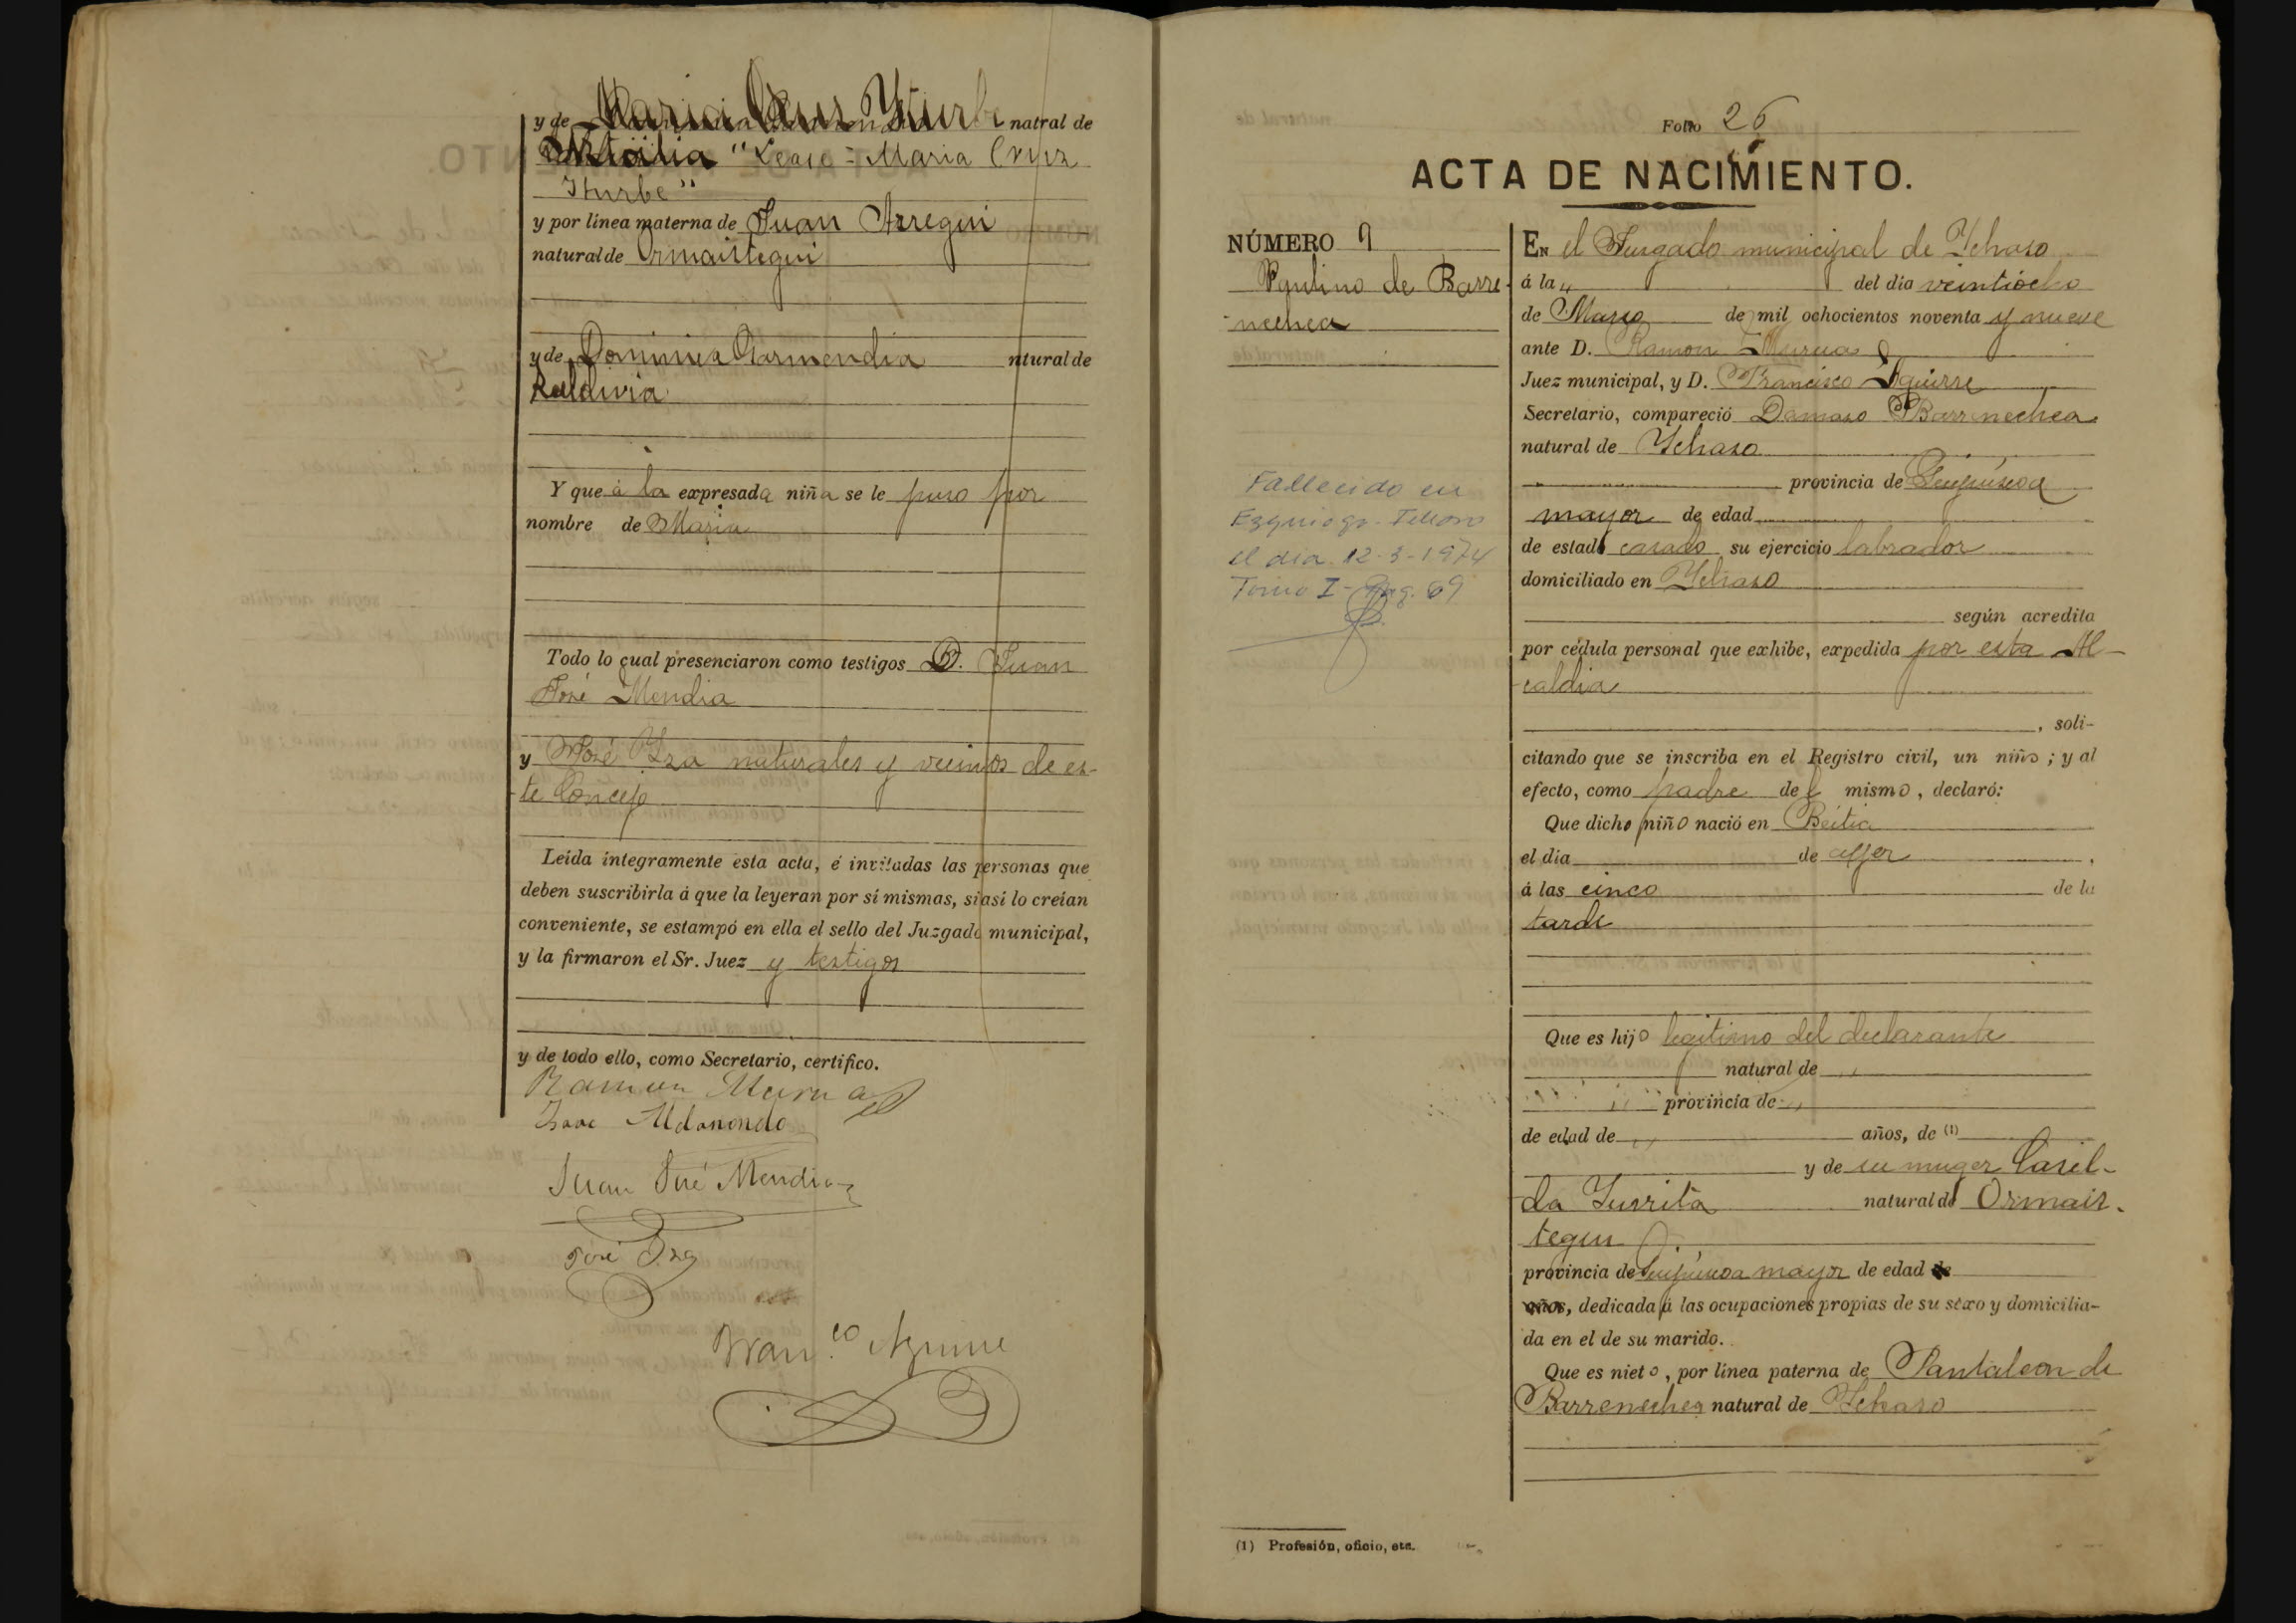 y de Maria Cruz Yturbe natral de
"Lease = Maria Cruz
Iturbe"
y por línea materna de Juan Arregui
natural de Ormaistegui
y de Dominica Garmendia ntural de
Zaldivia
Y que á la expresada niña se le puso por
nombre de Maria
Todo lo cual presenciaron como testigos D. Juan
José Mendia
y José Yza naturales y vecinos de es-
te Concejo
Leída íntegramente esta acta, é invitadas las personas que
deben suscribirla á que la leyeran por sí mismas, si así lo creían
conveniente, se estampó en ella el sello del Juzgado municipal,
y la firmaron el Sr. Juez y testigos
y de todo ello, como Secretario, certifico.
Ramon Murua
Aldanondo
Juan José Mendia
José Yza
Fran.co Aguirre
Folio 26
ACTA DE NACIMIENTO.
NÚMERO 9
Paulino de Barre-
nechea
Fallecido en
Ezquioga-
el dia 12-3-1974
Tomo I - Pag. 69
EN el Jusgado municipal de Ychaso
á la " del día veintiócho
de Marzo de mil ochocientos noventa y nueve
ante D. Ramon Murua
Juez municipal, y D. Francisco Aguirre
Secretario, compareció Damaso Barrenechea
natural de Ychaso
provincia de Guipúscoa
mayor de edad
de estado casado su ejercicio labrador
domiciliado en Ychaso
según acredita
por cédula personal que exhibe, expedida por esta Al-
caldia
, soli-
citando que se inscriba en el Registro civil, un niño ; y al
efecto, como padre del mismo, declaró:
Que dicho niño nació en Beitia
el día de ayer ,
á las cinco de la
tarde
Que es hijo legitimo del declarante
natural de "
" provincia de "
de edad de " años, de (1)
y de su muger Casil-
da Yurrita natural de Ormais-
tegui
provincia de Guipúscoa mayor de edad de
años, dedicada á las ocupaciones propias de su sexo y domicilia-
da en el de su marido.
Que es nieto, por línea paterna de Pantaleon de
Barrenechea natural de Ychaso
(1) Profesión, oficio, etc.